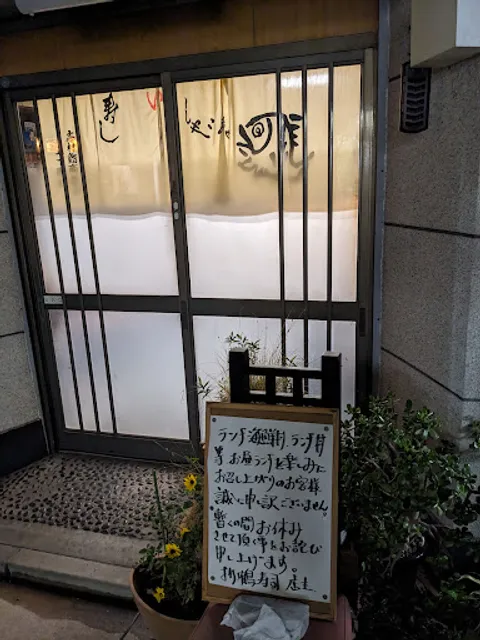 寿し
ランチ海鮮丼、ランチ丼
等 お昼ランチを楽しみに
お召し上がりのお客様
誠に申し訳ございません。
暫くの間お休み
させて頂く事をお詫び
申し上げます。
寿司 店主